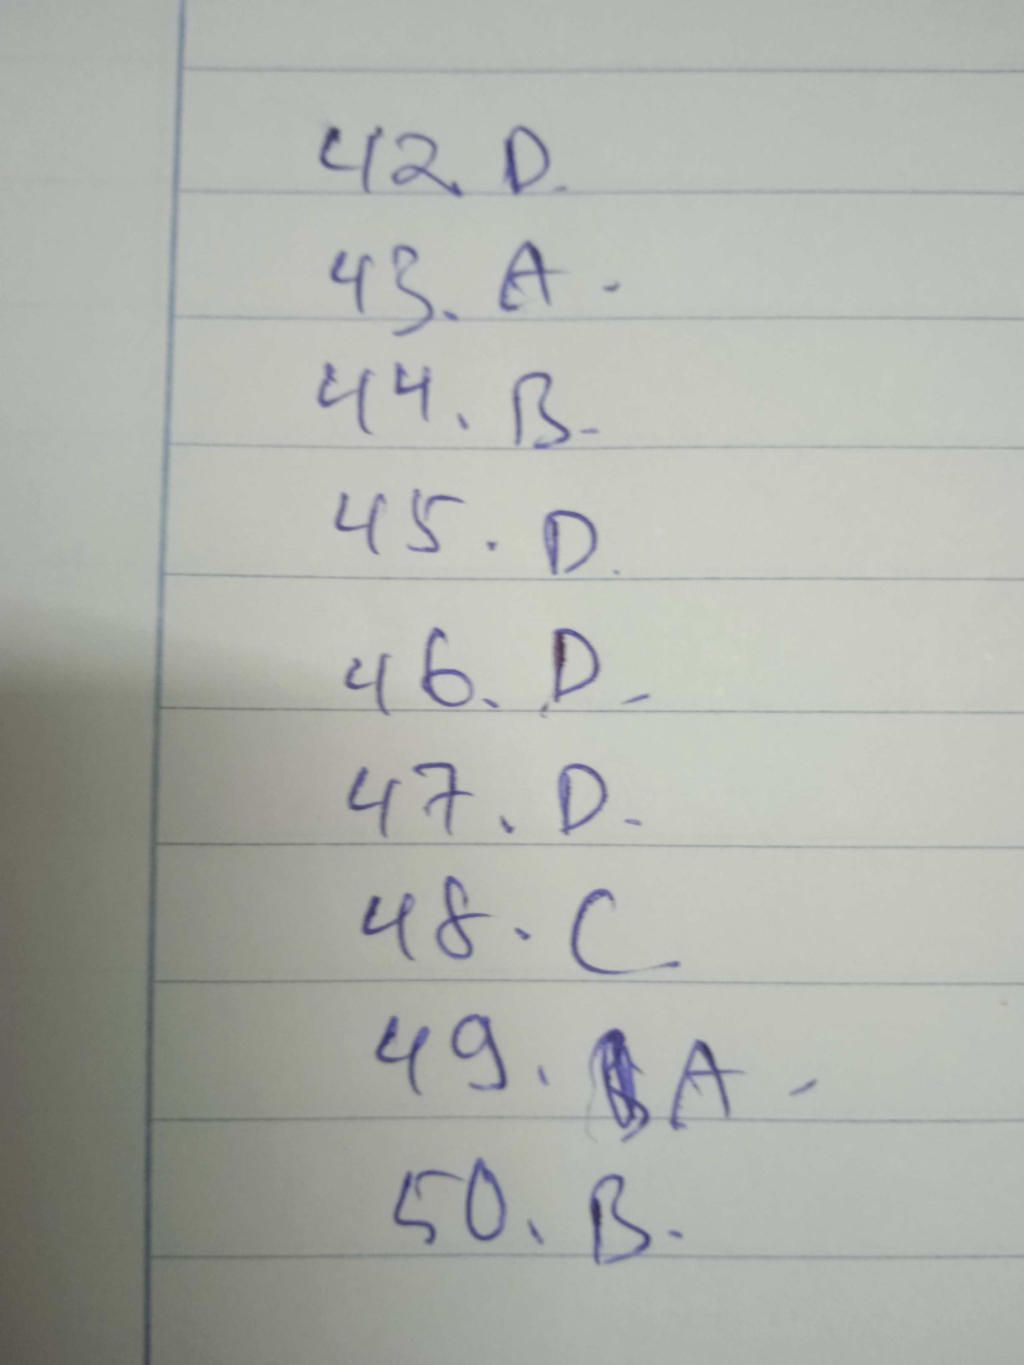 42. D.
43. A.
44. B.
45. D.
46. D.
47. D.
48. C.
49. A.
50. B.